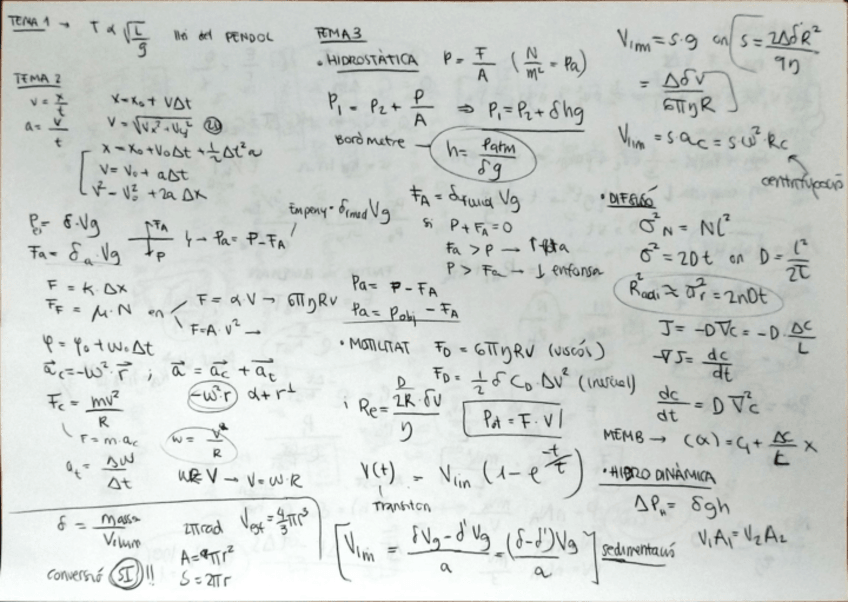 TEMA 1 → T ∝ √(L/g) llei del PENDOL
TEMA 2
v = x/t x = x₀ + v∆t
a = v/t v = √(Vx² + Vy²) 2D
x = x₀ + v₀∆t + ½∆t²a
v = v₀ + a∆t
v² - v₀² + 2a ∆x
δ·Vg
Fa = δa·Vg ↑FA ↓P ↳ Pa = P - FA Empeny = δmed Vg
F = K·∆x
FF = μ·N en F = α·V → 6πηRv
F = A·v² →
φ = φ₀ + ω₀∆t
ac = -ω²·r ; a = ac + at
-ω²·r α + r⊥
Fc = mv²/R
F = m·ac ω = v²/R
at = ∆ω/∆t → V = ω·R
δ = massa/Volum 2πrad Vesf = 4/3πr³
A = 4πr²
conversió SI!! S = 2πr
TEMA 3
· HIDROSTÀTICA P = F/A (N/m² = Pa)
P₁ = P₂ + P/A ⇒ P₁ = P₂ + δhg
Baròmetre h = Patm/δg
FA = δfluid Vg
si P + FA = 0
Fa > P → ↑ flota
P > Fa → ↓ enfonsa
Pa = P - FA
Pa = Pobj - FA
· MOTILITAT FD = 6πηRv (viscós)
FD = ½ δ CD·∆v² (inercial)
Re = D 2R·δv/η Pot = F·V
V(t) = Vlim (1 - e^(-t/τ))
Transiton
[Vlim = (δVg - δ'Vg)/a = (δ-δ')Vg/a] sedimentació
Vlim = s·g on s = 2∆δR²/9η
= ∆δV/6πηR
Vlim = s ac = sω²·Rc
centrifugació
· DIFUSIÓ
σ²N = Nl²
σ² = 2Dt on D = l²/2τ
R²radi ≈ σr² = 2nDt
J = -D∇c = -D·∆c/L
-∇J = dc/dt
dc/dt = D∇²c
MEMB → C(x) = C₁ + ∆c/L x
· HIDRODINÀMICA
∆Pn = δgh
V₁A₁ = V₂A₂